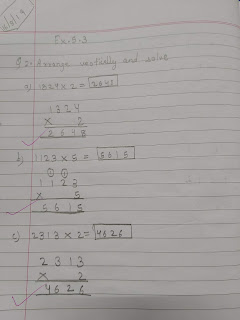 Ex-5.3
Q2: Arrange vertically and solve
a) 1324 × 2 = 2648
1324
× 2
2648
b) 1123 × 5 = 5615
1123
× 5
5615
c) 2313 × 2 = 4626
2313
× 2
4626